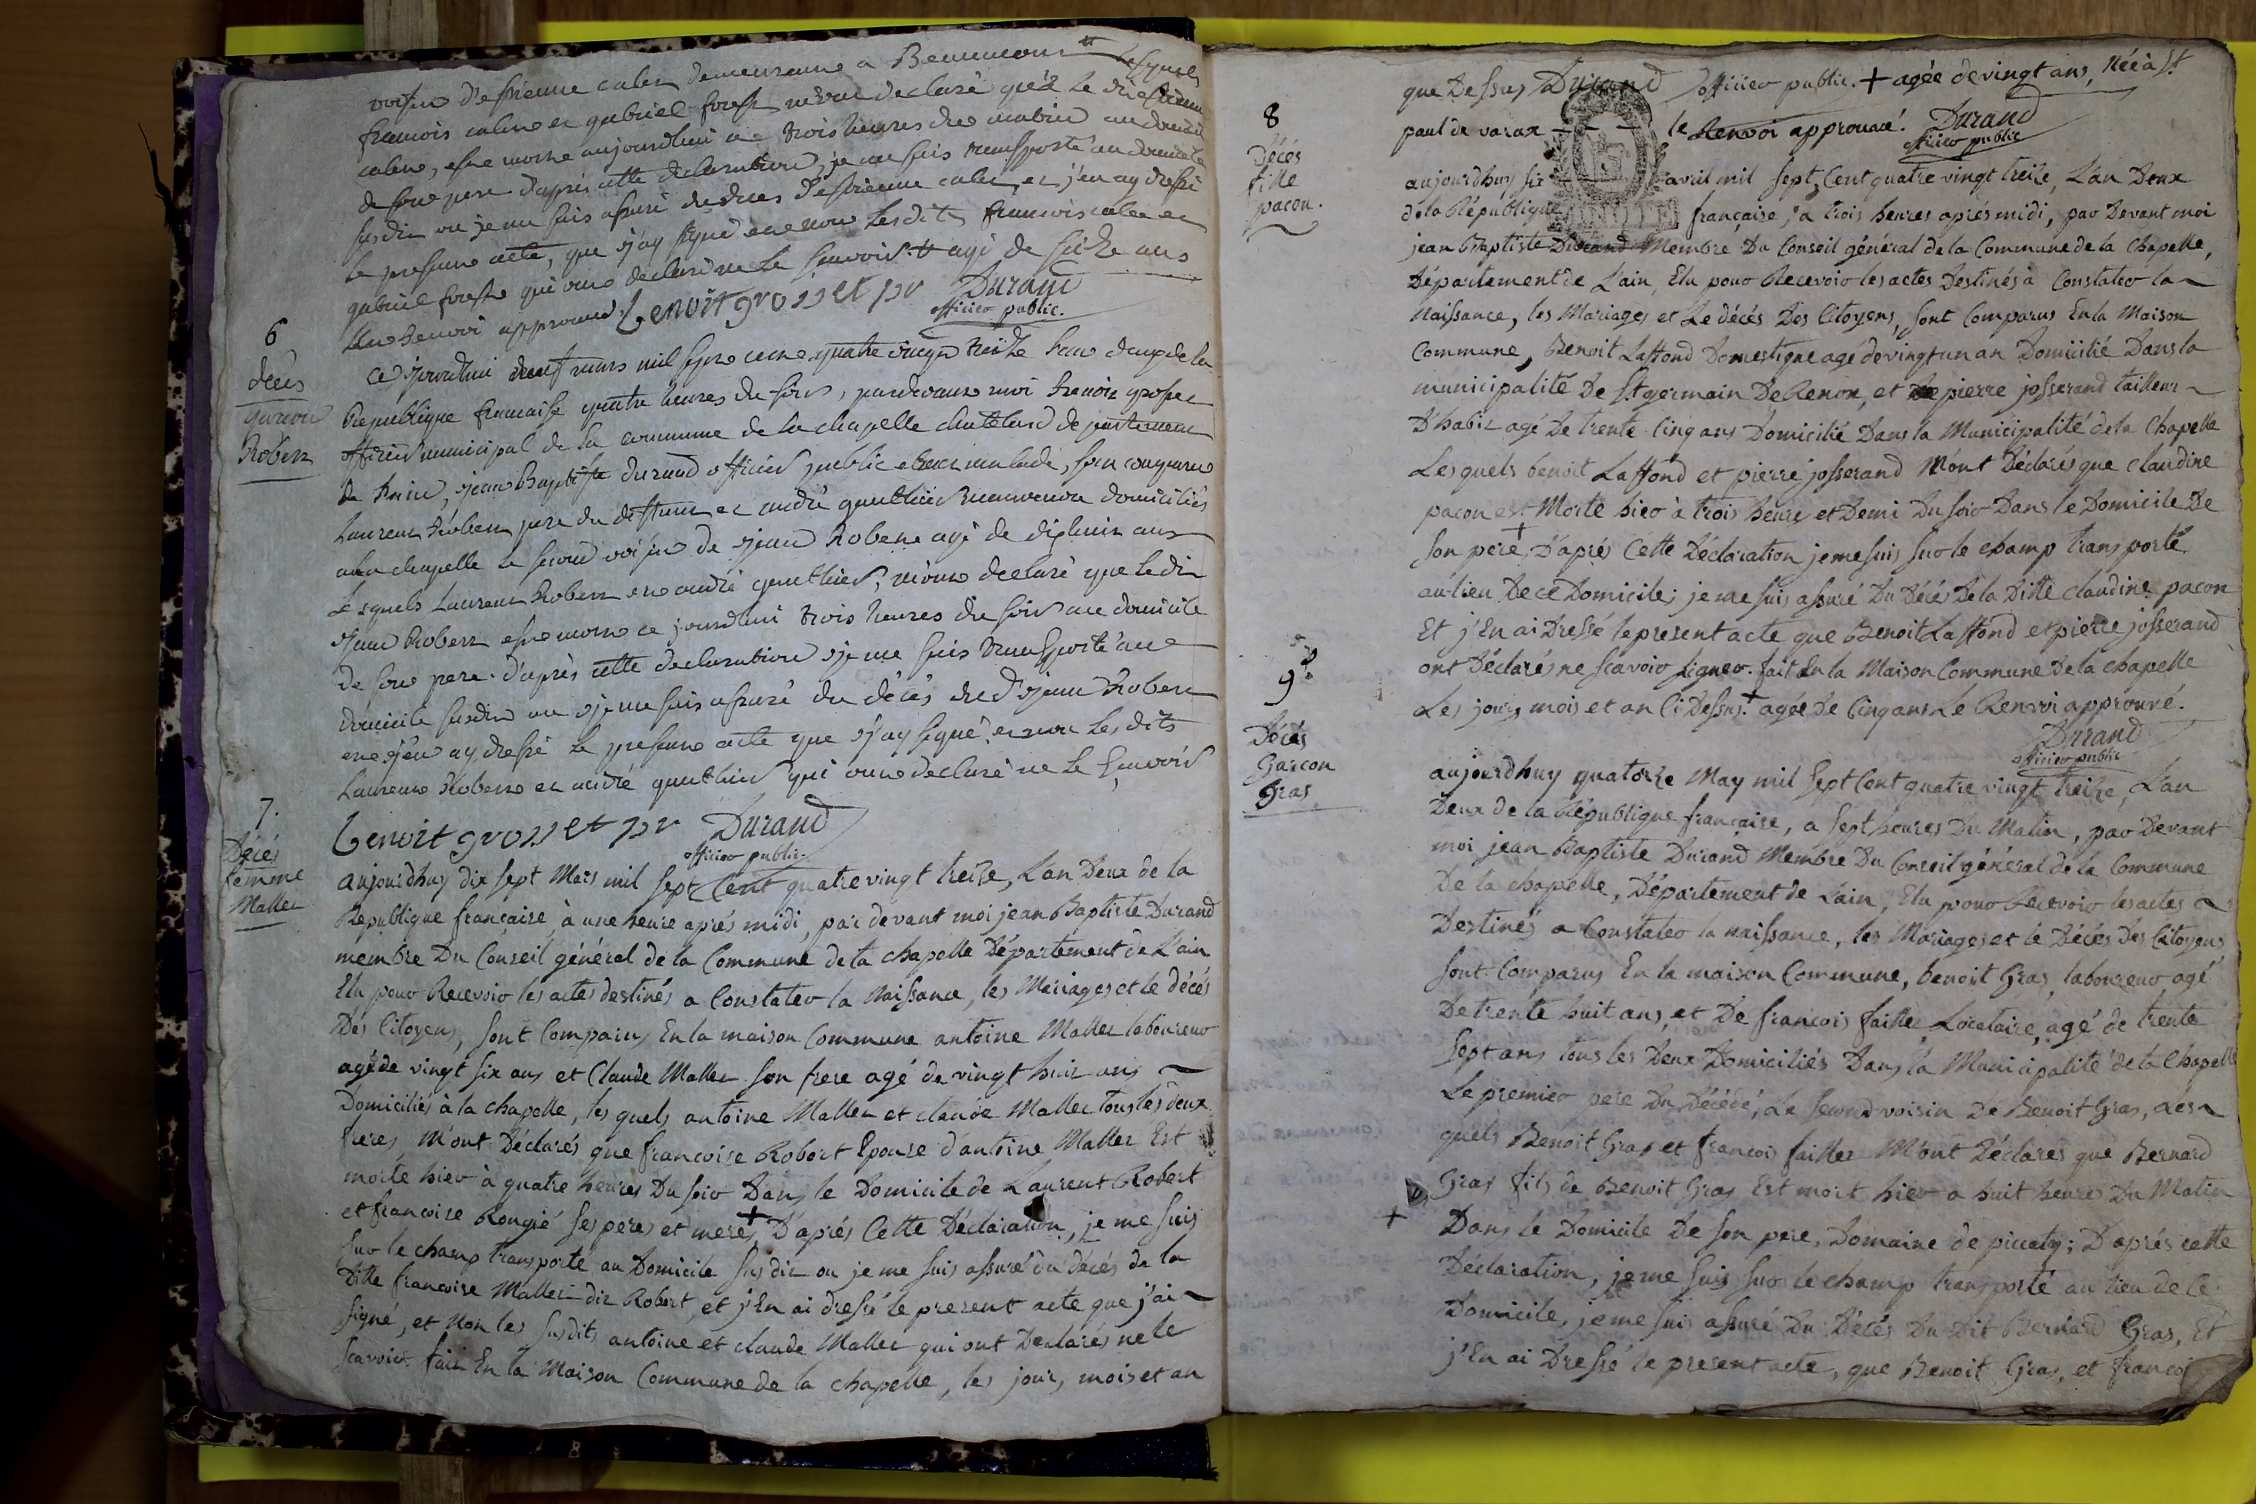 voisin d'estienne caler demeurant a Beaumont # lesquels
francois caler et gabriel forest m'ont declaré que le dit estienne
caler, est mort aujourdhui a trois heures du matin au domicile
de son pere d'après cette declaration, je me suis transporté au domicile
susdit ou je me suis assuré du deces d'estienne caler, et j'en ay dressé
le present acte, que j'ay signé et non les dits francois caler et
gabriel forest qui ont declaré ne le scavoir. # agé de seize ans
le renvoi approuvé. Benoit grosset pr Durand
officier public.
6
décès
garcon
Robert
Ce jourdhui neuf mars mil sept cent quatre vingt treize l'an deux de la
Republique francaise quatre heures du soir, pardevant moi benoit grosset
officier municipal de la commune de la chapelle chatelard departement
de l'ain, jean Baptiste durand officier public etant malade, sont comparus
Laurent Robert pere du deffunt et andré gauthier manoeuvre domiciliés
a la chapelle le second voisin de jean Robert agé de dix huit ans
Lesquels Laurent Robert et andré gauthier, m'ont declaré que ledit
jean Robert est mort ce jourdhui trois heures du soir au domicile
de son pere. d'après cette declaration je me suis transporté au
domicile susdit ou je me suis assuré du décès du d. jean Robert
et j'en ay dressé le present acte que j'ay signé et non les dits
Laurent Robert et andré gauthier qui ont declaré ne le scavoir
Benoit grosset pr Durand
officier public
7.
Décés
femme
Mallet
aujourdhuy dix sept Mars mil sept Cent quatre vingt treize, L'an Deux de la
Republique francaise, à une heure aprés midi, par devant moi jean Baptiste Durand
membre Du Conseil général de la Commune de la chapelle Département de L'ain
Elu pour Recevoir les actes destinés a Constater la Naissance, les Mariages et le décés
Des Citoyens, sont Comparus En la maison Commune antoine Mallet laboureur
agé de vingt six ans et Claude Mallet son frere agé de vingt huit ans
Domiciliés à la chapelle, les quels antoine Mallet et claude Mallet tous les deux
freres, M'ont Déclarés que francoise Robert Epouse d'antoine Mallet Est
morte hier à quatre heures Du soir Dans le Domicile de Laurent Robert
et francoise Rougié ses peres et meres + D'aprés Cette Déclaration, je me suis
sur le champ transporté au Domicile susdit ou je me suis assuré du décés de la
Ditte francoise Mallet dit Robert, et j'En ai dressé le present acte que j'ai
signé, et Non les susdits antoine et claude Mallet qui ont Declarés ne le
scavoir. fait En la Maison Commune de la chapelle, les jour, mois et an
que Dessus Durand officier public. + agée de vingt ans, Née à St
paul de varax le Renvoi approuvé. Durand
officier public
8
Décés
fille
pacon.
aujourdhuy six avril mil sept Cent quatre vingt treize, L'an Deux
de la République française, a trois heures aprés midi, par Devant moi
jean Baptiste Durand Membre Du Conseil général de la Commune de la chapelle,
Département de L'ain, Elu pour Recevoir les actes Destinés à Constater la
Naissance, les Mariages et Le décés Des Citoyens, sont Comparus En la Maison
Commune, Benoit Laffond Domestique agé de vingt un an Domicilié Dans la
municipalité De St germain De Renon, et pierre josserand tailleur
D'habit agé De trente Cinq ans Domicilié Dans la Municipalité de la Chapelle
Les quels benoit Laffond et pierre josserand M'ont Déclarés que claudine
pacon est Morte hier à trois heure et Demi Du soir Dans le Domicile De
son pere + D'aprés Cette Déclaration je me suis sur le champ transporté
au lieu De ce Domicile; je me suis assuré Du Décés De la Ditte claudine pacon
Et j'En ai Dressé le present acte que Benoit Laffond et pierre josserand
ont Déclarés ne scavoir signer. fait En la Maison Commune De la chapelle
Les jour, mois et an Ci Dessus. + agée De Cinq ans Le Renvoi approuvé.
Durand
officier public
9.
Décés
Garcon
Gras
aujourdhuy quatorze May mil Sept Cent quatre vingt treize, L'an
Deux de la République française, a sept heures Du Matin, par Devant
moi jean Baptiste Durand Membre Du Conseil général de la Commune
De la chapelle, Département de L'ain, Elu pour Recevoir les actes
Destinés a Constater la naissance, les Mariages et le Décés Des Citoyens
sont Comparus En la maison Commune, benoit Gras, laboureur agé
De trente huit ans, et De francois faillet Locataire, agé de trente
Sept ans tous les Deux Domiciliés Dans la Municipalité de la Chapelle
Le premier pere Du Décédé, Le second voisin De Benoit Gras, Les
quels Benoit Gras et francois faillet M'ont Déclarés que Bernard
Gras fils de Benoit Gras Est mort hier a huit heures Du Matin
+ Dans le Domicile De son pere, Domaine de piccaty; D'aprés cette
Déclaration, je me suis sur le champ transporté au lieu de ce
Domicile, je me suis assuré Du Décés Du Dit Bernard Gras, Et
j'En ai Dressé le present acte, que Benoit Gras, et francoi